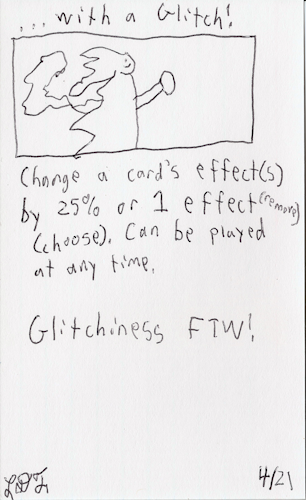 ...with a Glitch!
Change a card's effect(s)
by 25% or 1 effect (remove)
(choose). Can be played
at any time.
Glitchiness FTW!
4/21